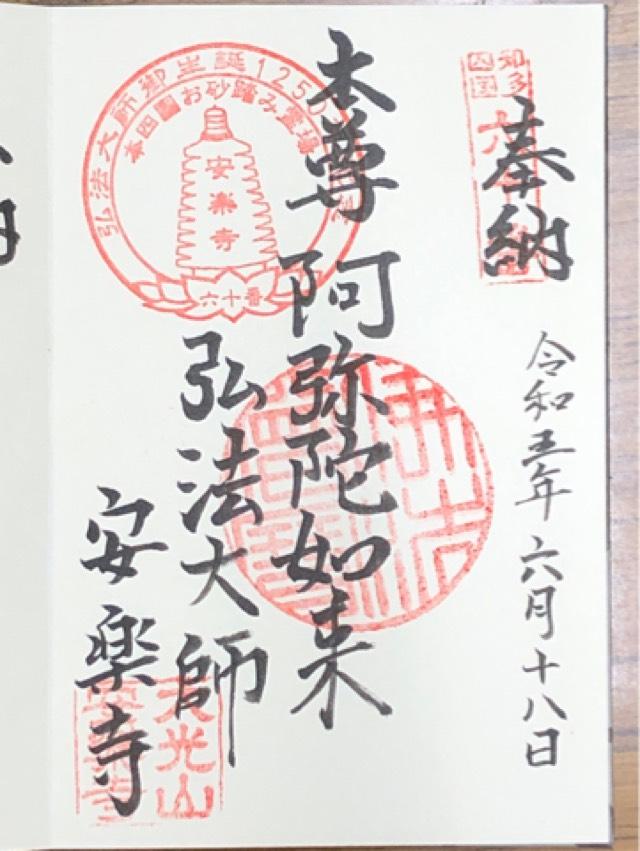 奉納
令和五年六月十八日
知多
四国
六十番
本尊 阿弥陀如来
弘法大師
安楽寺
弘法大師御生誕1250
本四国お砂踏み霊場
安楽寺
六十番
天光山
安楽寺